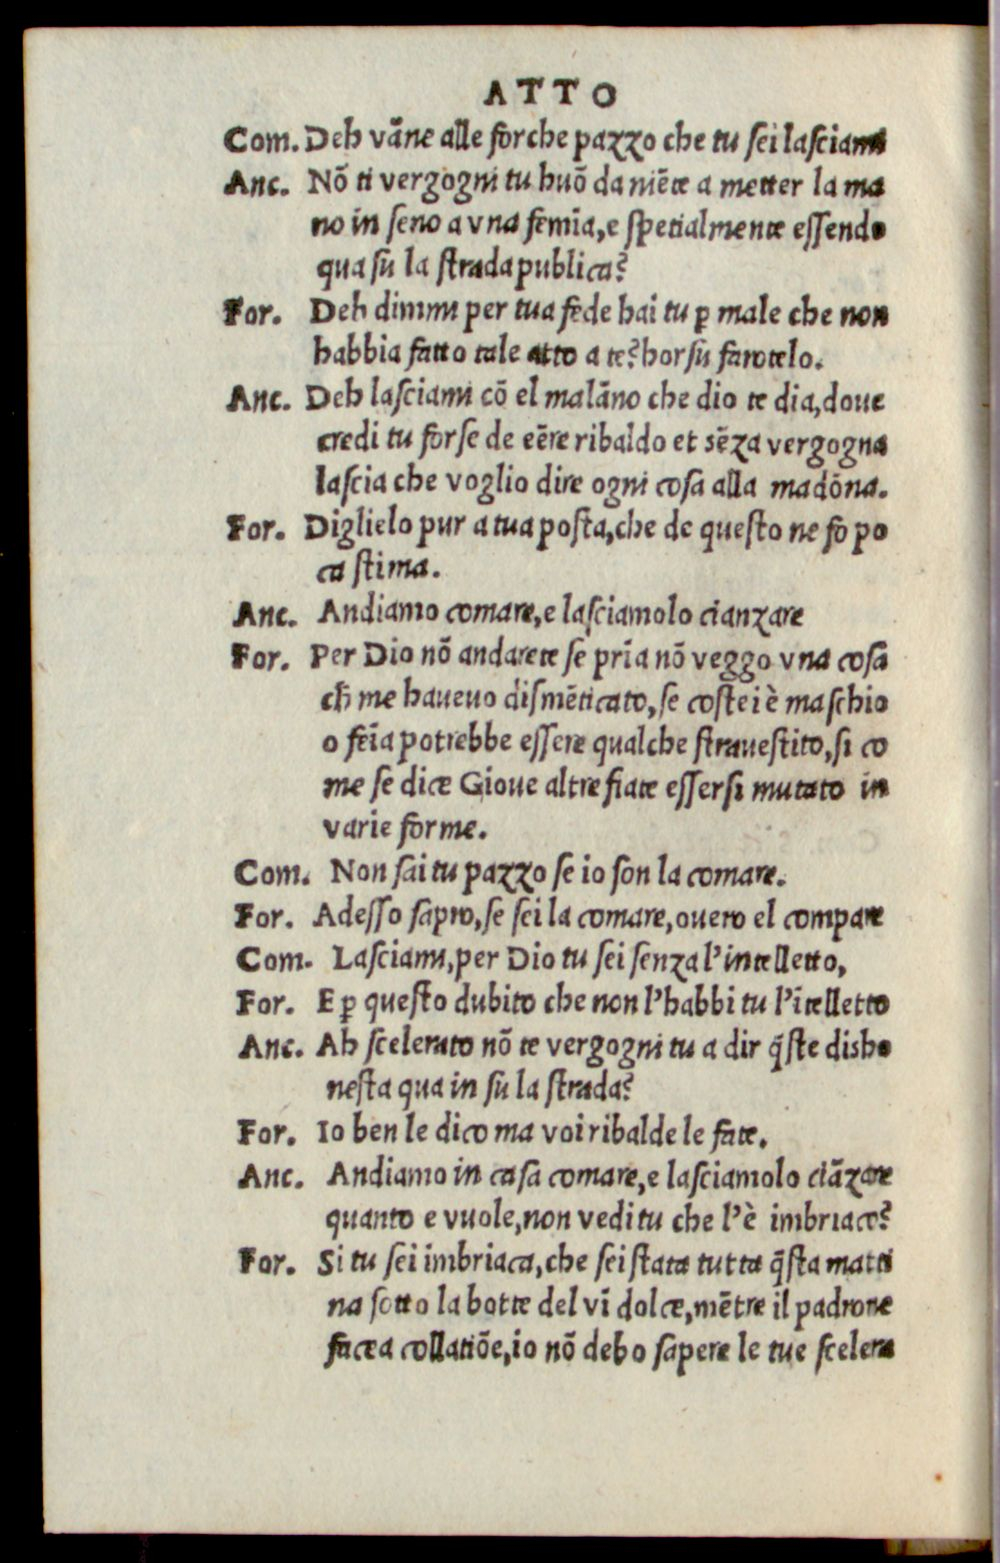 ATTO
Com. Deh vãne alle forche pazzo che tu ſei laſciami
Anc. Nõ ti vergogni tu huõ da niẽte a metter la ma
no in ſeno a vna femĩa, e ſpetialmente eſſendo
qua ſu la ſtrada publica?
For. Deh dimmi per tua fede hai tu ꝑ male che non
habbia fatto tale atto a te? horſu farotelo.
Anc. Deh laſciami cõ el malãno che dio te dia, doue
credi tu forſe de eẽre ribaldo et sẽza vergogna
laſcia che voglio dire ogni coſa alla madõna.
For. Diglielo pur a tua poſta, che de queſto ne fo po
ca ſtima.
Anc. Andiamo comare, e laſciamolo cianzare
For. Per Dio nõ andarete ſe prĩa nõ veggo vna coſa
ch̃ me haueuo diſmẽticato, ſe coſtei è maſchio
o fẽia potrebbe eſſere qualche ſtraueſtito, ſi co
me ſe dice Gioue altre fiate eſſerſi mutato in
varie forme.
Com. Non ſai tu pazzo ſe io ſon la comare.
For. Adeſſo ſapro, ſe ſei la comare, ouero el compare
Com. Laſciami, per Dio tu ſei ſenza l'intelletto,
For. E ꝑ queſto dubito che non l'habbi tu l'ĩtelletto
Anc. Ah ſcelerato nõ te vergogni tu a dir q̃ſte disho
neſta qua in ſu la ſtrada?
For. Io ben le dico ma voi ribalde le fate.
Anc. Andiamo in caſa comare, e laſciamolo ciãzare
quanto e vuole, non vedi tu che l'è imbriaco?
For. Si tu ſei imbriaca, che ſei ſtata tutta q̃ſta matti
na ſotto la botte del vĩ dolce, mẽtre il padrone
facea collatiõe, io nõ debo ſapere le tue ſcelera